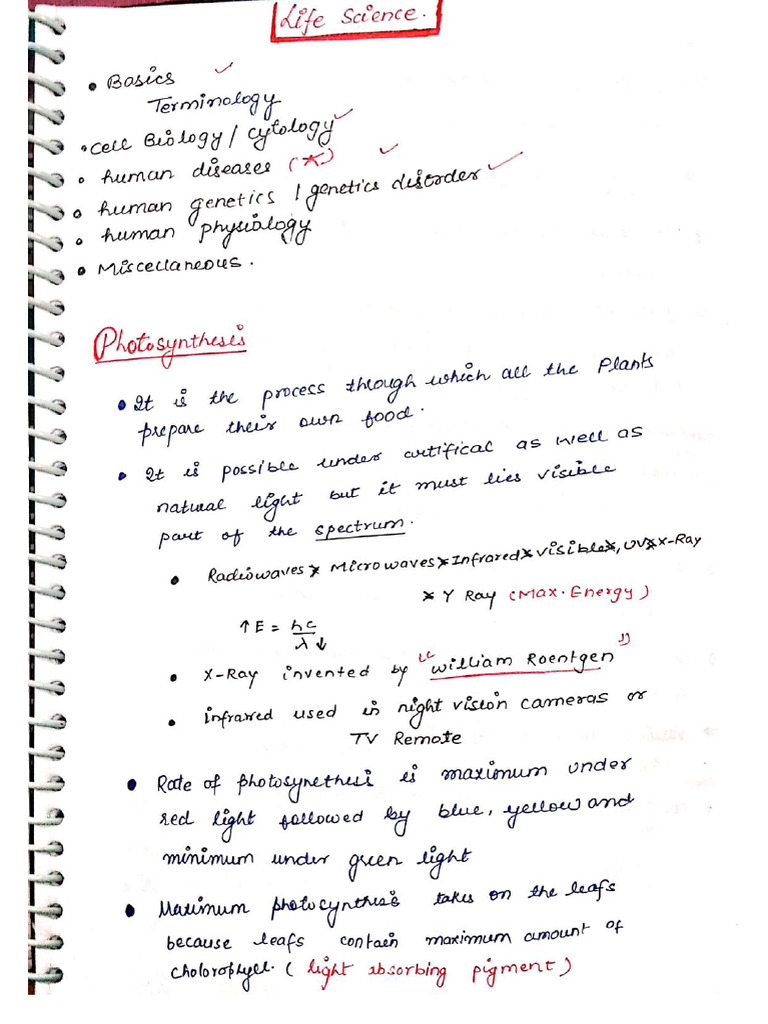 Life Science.
• Basics ✓
Terminology
• Cell Biology / cytology ✓
• human diseases (*) ✓
• human genetics / genetics disorder ✓
• human physiology
• Miscellaneous.
Photosynthesis
• It is the process through which all the Plants
prepare their own food.
• It is possible under artifical as well as
natural light but it must lies visible
part of the spectrum.
• Radiowaves < Microwaves < Infrared < visible <, UV < X-Ray
< γ Ray (Max. Energy)
↑E = hc/λ↓
• X-Ray invented by "William Roentgen"
• infrared used in night vision cameras or
TV Remote
• Rate of photosynethesis is maximum under
red light followed by blue, yellow and
minimum under green light
• Maximum photosynthesis takes on the leafs
because leafs contain maximum amount of
cholorophyll. (light absorbing pigment)